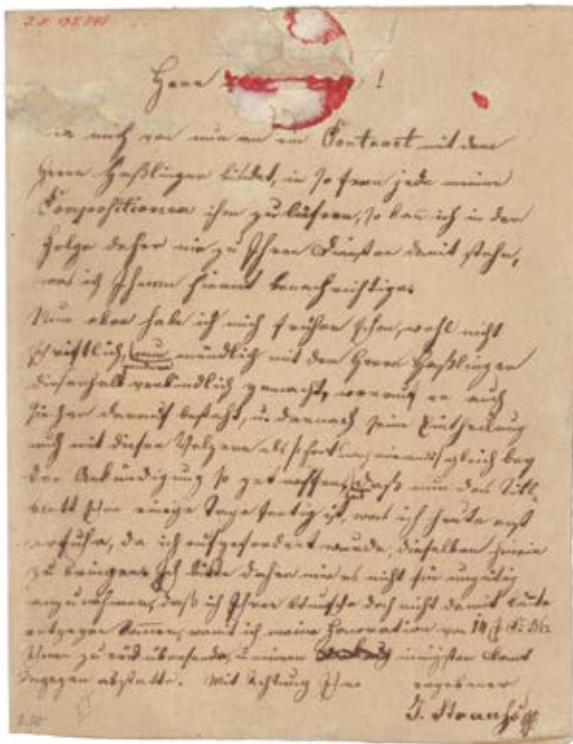 J. N. 135.841
Herr !
mich von nun an ein Contract mit dem
Herrn Haßlinger bindet, in so fern jede meine
Compositionen ihm zu liefern, so kann ich in der
Folge daher nie zu Ihren Diensten damit stehn,
was ich Ihnen hiermit benachrichtige.
Nun aber habe ich mich früher schon, wohl nicht
schriftlich, nur mündlich mit dem Herrn Haßlinger
diesenfalls verbindlich gemacht, er auch
darauf besteht, u. darnach seine Eintheilung
auch mit diesen Walzern als gleich bey
der Ankündigung so getroffen, daß nun das Titl
blatt schon einige Tage fertig ist, was ich heute erst
erfuhr, da ich aufgefordert wurde, dieselben
zu bringen. Ich bitte daher mir es nicht für ungütig
anzunehmen, daß ich Ihren Wunsche doch nicht damit
entgegen kommen, womit ich meine Honoration von 14
Ihnen zurück übersende, u. meinen innigsten Dank
dagegen abstatte. Mit Achtung Ihr ergebener
J. Strauß